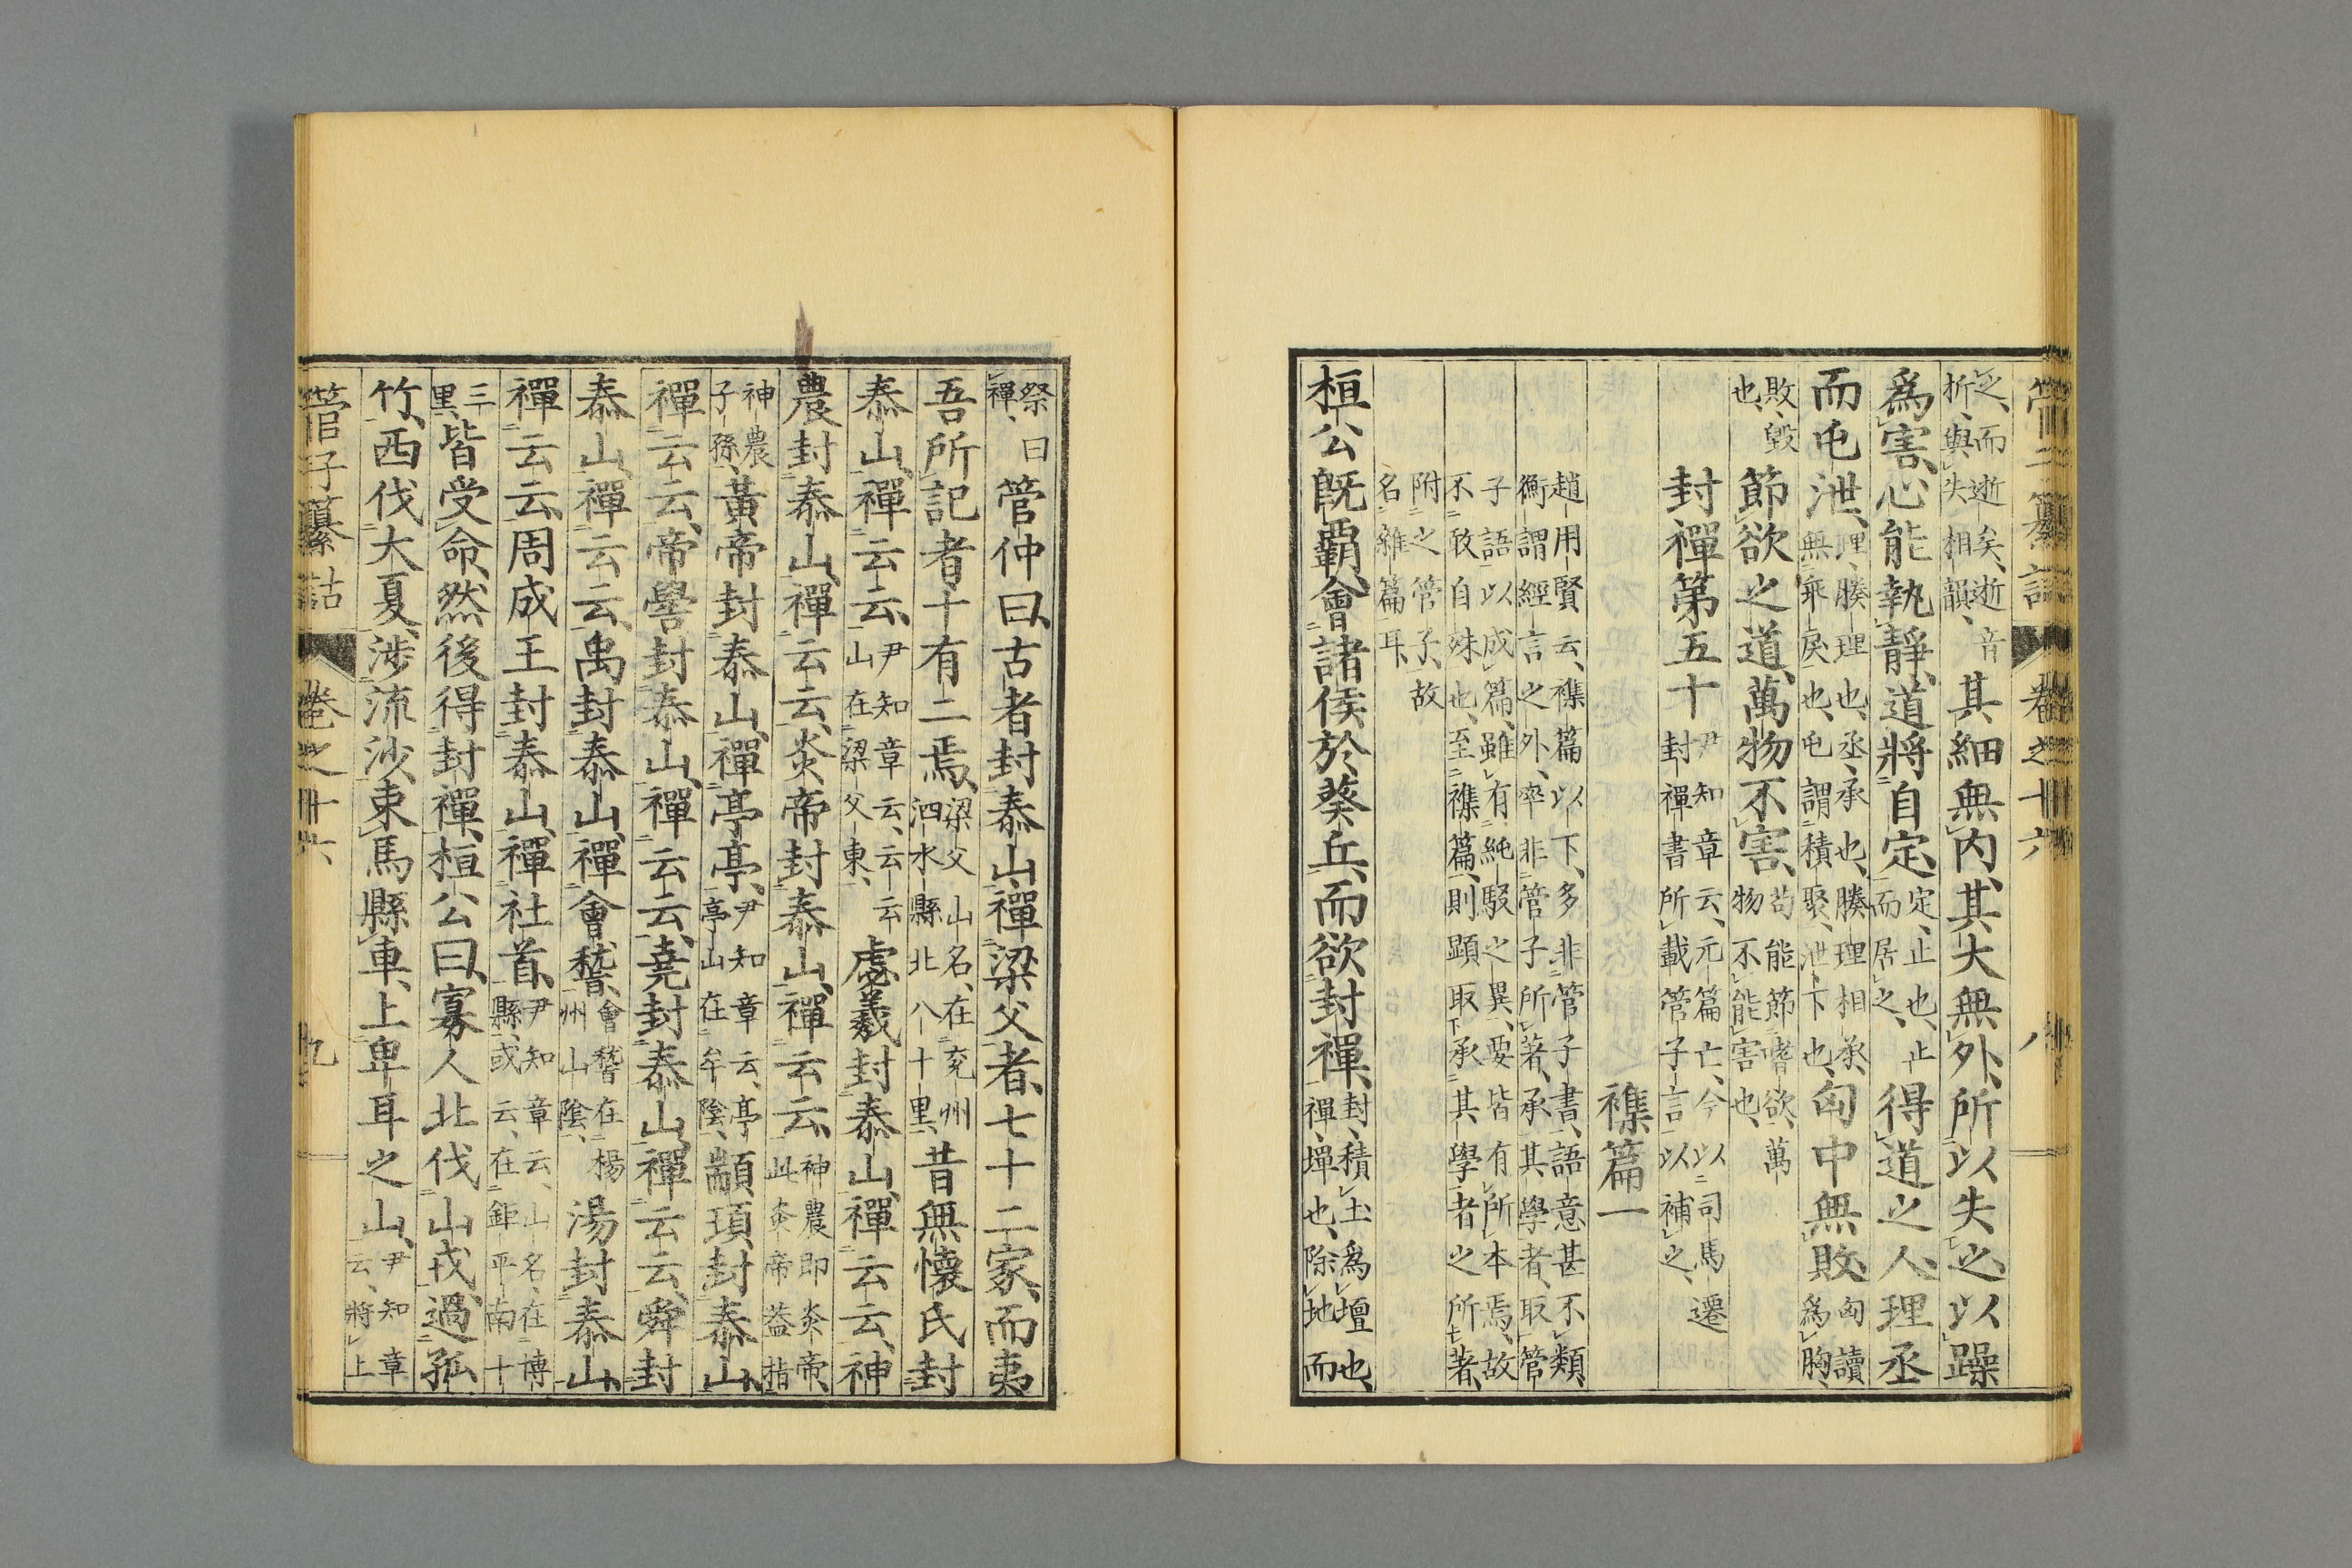 管子纂詁 卷之十六 八
之、而逝矣、逝音
折、與失相韻、
其細無内、其大無外、所以失之、以躁
爲害、心能執靜、道將自定、
定、止也、止
而居之、
得道之人、理丞
而屯泄、
理、腠理也、丞、承也、腠理相承、
無乖戾也、屯謂積聚、泄下也、
匈中無敗、
匈讀
爲胸、
敗、毀
也、
節欲之道、萬物不害、
苟能節嗜欲、萬
物不能害也、
封禪第五十
尹知章云、元篇亡、今以司馬遷
封禪書所載管子言以補之、
襍篇一
趙用賢云、襍篇以下、多非管子書、語意甚不類、
衡謂經言之外、率非管子所著、承其學者、取管
子語以成篇、雖有純駁之異、要皆有所本焉、故
不敢自殊也、至襍篇、則顕取承其學者之所著、
附之管子、故
名雜篇耳、
桓公既覇、會諸侯於葵丘、而欲封禪、
封、積土爲壇也、
禪、墠也、除地而
祭曰
禪、
管仲曰、古者封泰山、禪梁父者、七十二家、而夷
吾所記者、十有二焉、
梁父山名、在兗州
泗水縣北八十里、
昔無懷氏封
泰山、禪云云、
尹知章云、云云
山在梁父東、
虙羲封泰山、禪云云、神
農封泰山、禪云云、炎帝封泰山、禪云云、
神農即炎帝、
此炎帝蓋指
神農
子孫、
黃帝封泰山、禪亭亭、
尹知章云、亭
亭山在牟陰、
顓頊封泰山、
禪云云、帝嚳封泰山、禪云云、堯封泰山、禪云云、舜封
泰山、禪云云、禹封泰山、禪會稽、
會稽在楊
州山陰、
湯封泰山、
禪云云、周成王封泰山、禪社首、
尹知章云、山名、在博
縣、或云、在鉅平南十
三
里、
皆受命、然後得封禪、桓公曰、寡人北伐山戎、過孤
竹、西伐大夏、涉流沙、束馬縣車、上卑耳之山、
尹知章
云、將上
管子纂詁 卷之十六 九